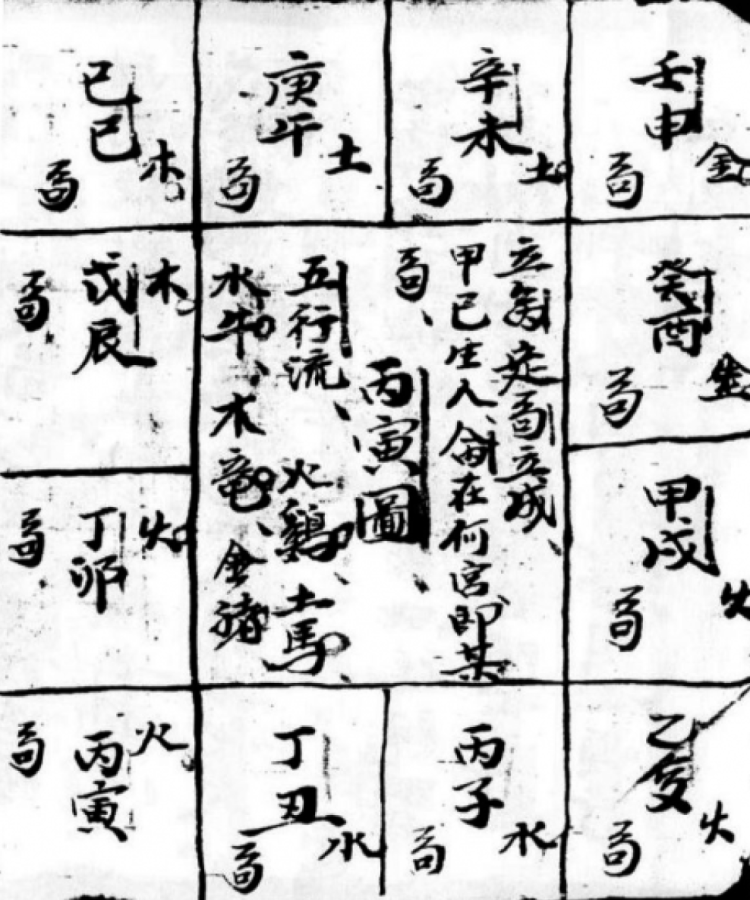 己巳
木
局
庚午
土
局
辛未
土
局
壬申
金
局
戊辰
木
局
立命定局立成
甲己生人命在何宮即某
局
丙寅圖
五行流
火鷄土馬
水牛木竜金豬
癸酉
金
局
丁卯
火
局
甲戌
火
局
丙寅
火
局
丁丑
水
局
丙子
水
局
乙亥
火
局